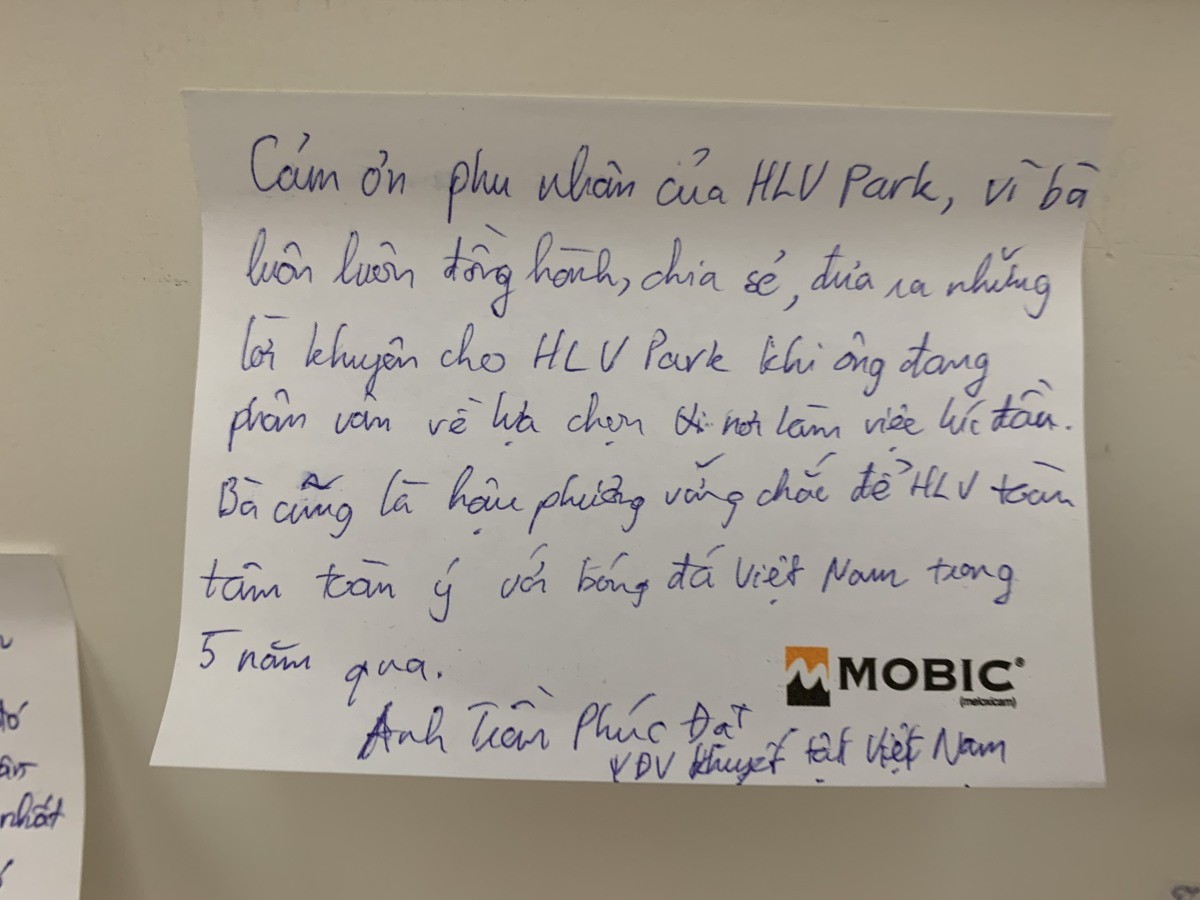 Cảm ơn phu nhân của HLV Park, vì bà
luôn luôn đồng hành, chia sẻ, đưa ra những
lời khuyên cho HLV Park khi ông đang
phân vân về lựa chọn nơi làm việc lúc đầu.
Bà cũng là hậu phương vững chắc để HLV toàn
tâm toàn ý với bóng đá Việt Nam trong
5 năm qua.
MOBIC®
(meloxicam)
Anh Trần Phúc Đạt
VĐV khuyết tật Việt Nam
nhất